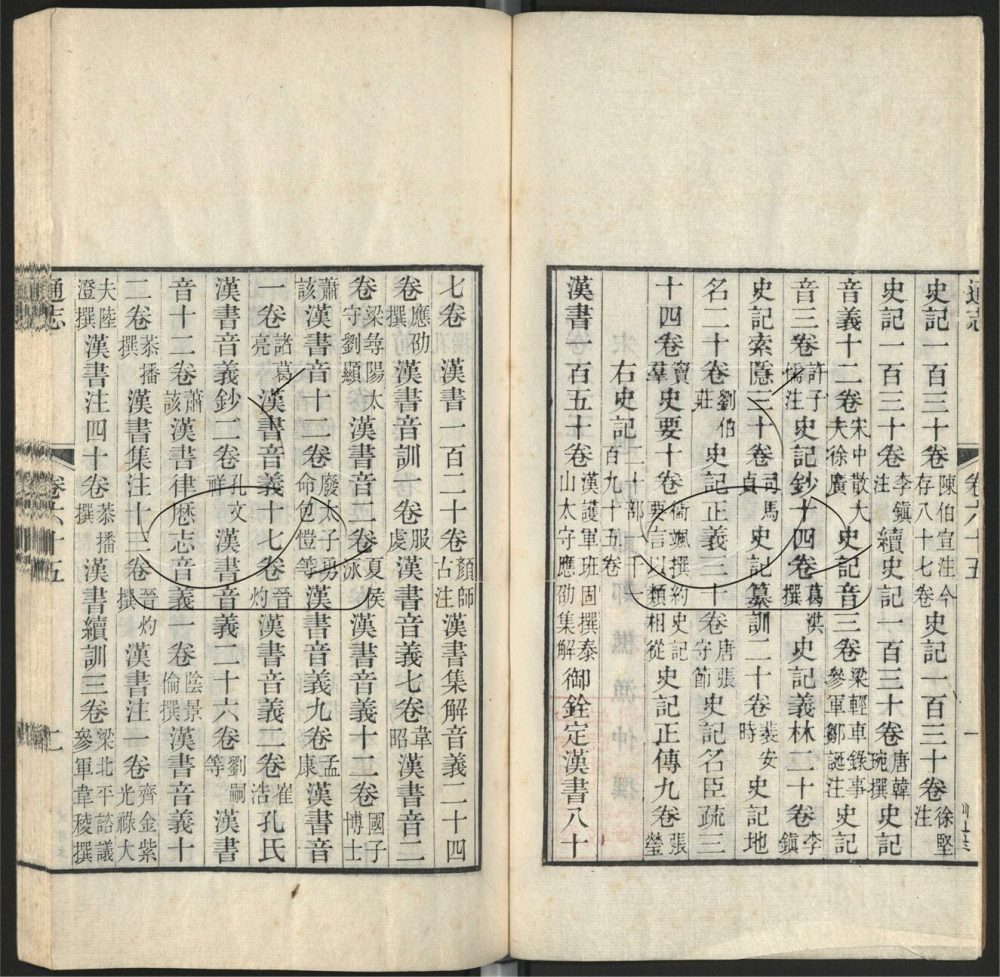 史記一百三十卷陳伯宣注今存八十七卷 史記一百三十卷徐堅注
史記一百三十卷李鎮注 續史記一百三十卷唐韓琬撰 史記
音義十二卷宋中散大夫徐廣 史記音三卷梁輕車錄事參軍鄒誕注 史記
音三卷許子儒注 史記鈔十四卷葛洪撰 史記義林二十卷李鎮
史記索隱三十卷司馬貞 史記纂訓二十卷裴安時 史記地
名二十卷劉伯莊 史記正義三十卷唐張守節 史記名臣疏三
十四卷竇羣 史要十卷衛颯撰約史記要言以類相從 史記正傳九卷張瑩
右史記
漢書一百五十卷漢護軍班固撰泰山太守應劭集解 御銓定漢書八十
七卷 漢書一百二十卷顏師古注 漢書集解音義二十四
卷應劭撰 漢書音訓一卷服虔 漢書音義七卷韋昭 漢書音二
卷梁尋陽太守劉顯 漢書音二卷夏侯泳 漢書音義十二卷國子博士
蕭該 漢書音十二卷廢太子勇命包愷等 漢書音義九卷孟康 漢書音
一卷諸葛亮 漢書音義十七卷晉灼 漢書音義二卷崔浩 孔氏
漢書音義鈔二卷孔文祥 漢書音義二十六卷劉嗣等 漢書
音十二卷蕭該 漢書律厯志音義一卷陰景倫撰 漢書音義十
二卷 漢書集注十三卷晉灼撰 漢書注一卷齊金紫光祿大
夫陸澄撰 漢書注四十卷 漢書續訓三卷梁北平諮議參軍韋稜撰
通志
卷六十五
二